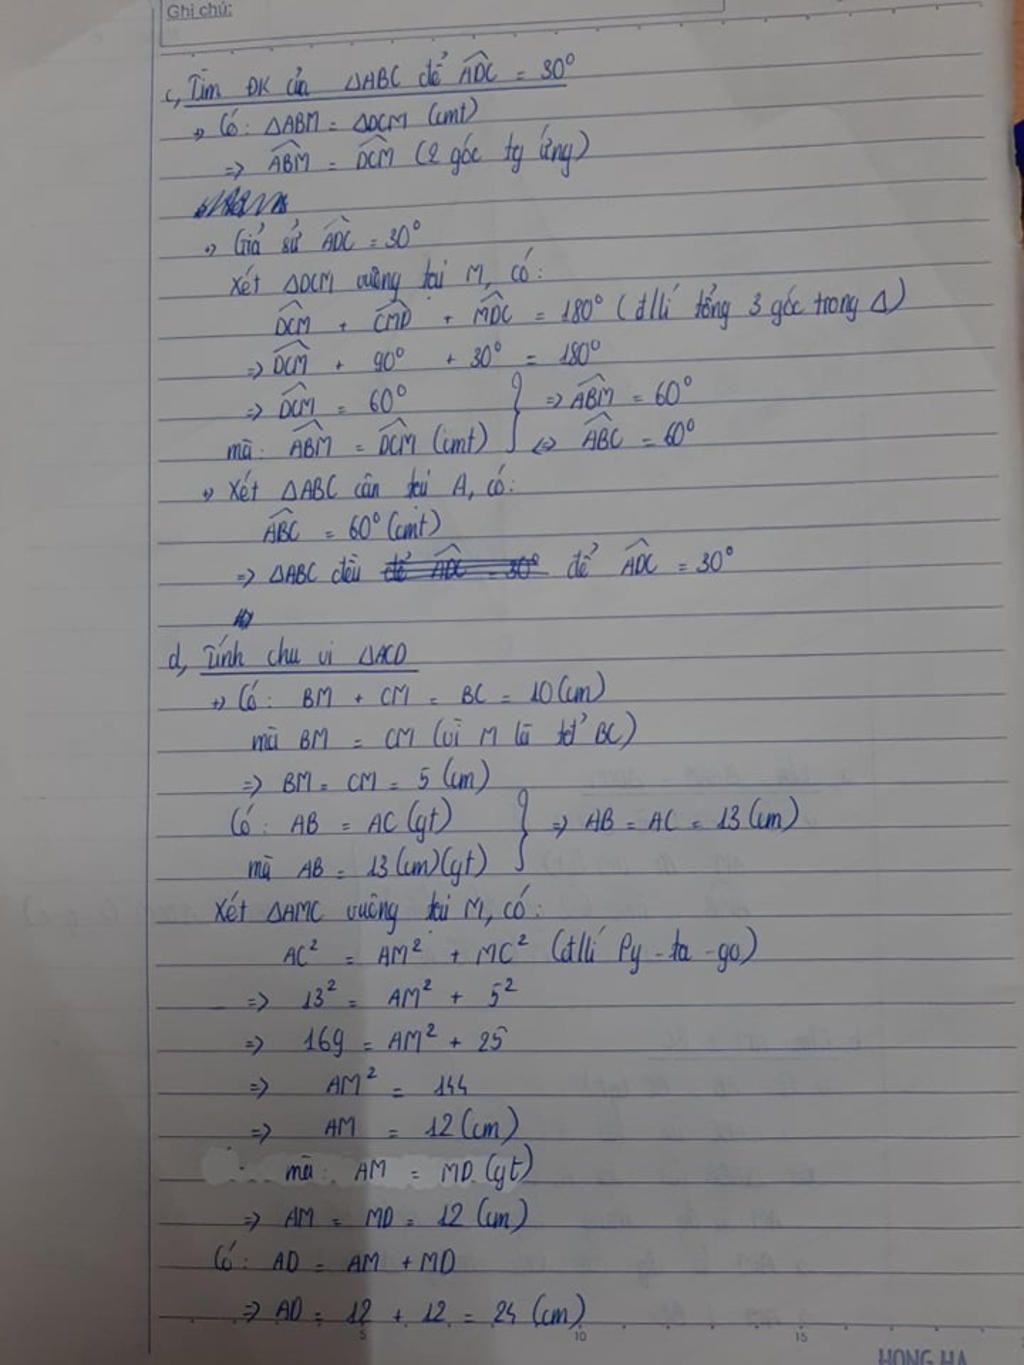 Ghi chú:
c, Tìm ĐK của ΔABC để ADC = 30°
+) Có: ΔABM = ΔDCM (cmt)
=> ABM = DCM (2 góc tg ứng)
+) Giả sử ADC = 30°
Xét ΔDCM vuông tại M, có:
DCM + CMD + MDC = 180° (đ/lí tổng 3 góc trong Δ)
=> DCM + 90° + 30° = 180°
=> DCM = 60° } => ABM = 60°
mà: ABM = DCM (cmt) <=> ABC = 60°
+) Xét ΔABC cân tại A, có:
ABC = 60° (cmt)
=> ΔABC đều để ADC = 30° để ADC = 30°
d, Tính chu vi ΔACD
+) Có: BM + CM = BC = 10 (cm)
mà BM = CM (vì M là tđ' BC)
=> BM = CM = 5 (cm)
Có: AB = AC (gt) } => AB = AC = 13 (cm)
mà AB = 13 (cm) (gt)
Xét ΔAMC vuông tại M, có:
AC² = AM² + MC² (đ/lí Py-ta-go)
=> 13² = AM² + 5²
=> 169 = AM² + 25
=> AM² = 144
=> AM = 12 (cm)
mà: AM = MD (gt)
=> AM = MD = 12 (cm)
Có: AD = AM + MD
=> AD = 12 + 12 = 24 (cm)
5 10 15
HONG HA